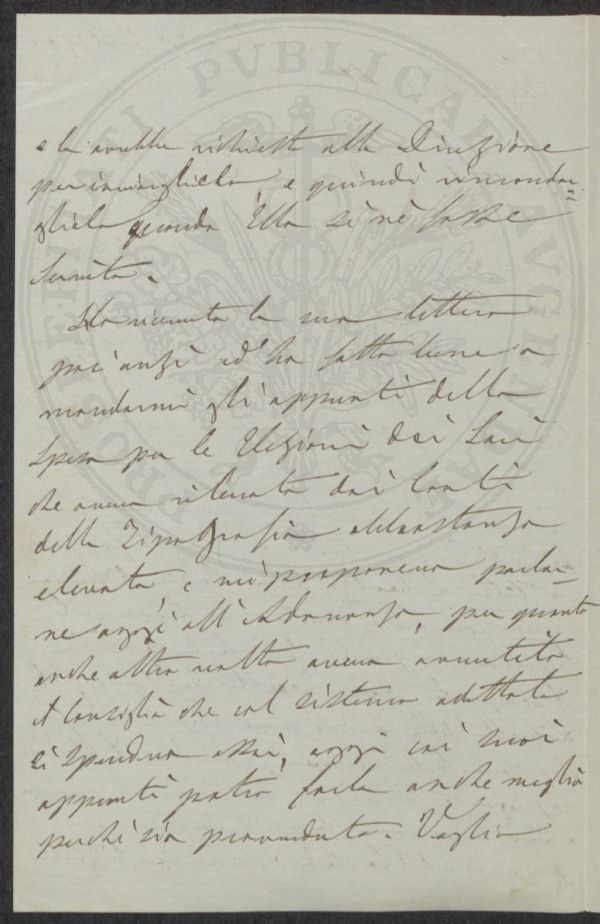 e la avrebbe richiesta alla Direzione
per inviargliela, e quindi rimandar=
gliela quando Ella si nè fosse
servita.
Ho ricevuto la sua lettera
poc'anzi ed ha fatto bene a
mandarmi gli appunti della
Spesa per le Elezioni dei Soci
che aveva rilevato dai Conti
della Tipografia abbastanza
elevata, e mi proponeva parlar=
ne oggi all'Adunanza, per quanto
anche altra volta aveva avvertito
il Consiglio che col sistema adottato
si spendeva assai, oggi coi suoi
appunti potrò farlo anche meglio
perchè sia provveduto. Voglia